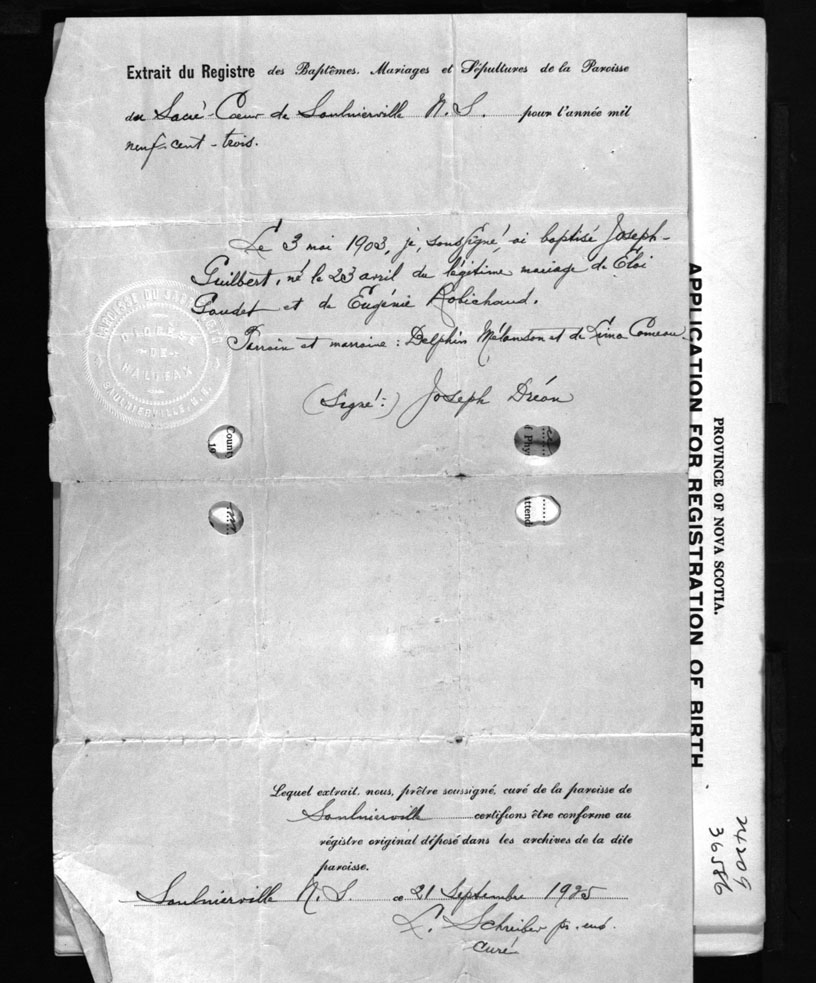 Extrait du Registre des Baptêmes, Mariages et Sépultures de la Paroisse
du Sacré-Coeur de Saulnierville N.S. pour l'année mil
neuf-cent-trois.
Le 3 mai 1903, je, soussigné, ai baptisé Joseph-
Guilbert, né le 23 avril du légitime mariage de Eloi
Gaudet et de Eugénie Robichaud.
Parrain et marraine : Delphin Mélanson et de Lima Comeau.
(Signé:) Joseph Dréan
PAROISSE DU SACRE-COEUR
DIOCESE
DE
HALIFAX
SAULNIERVILLE, N.S.
County
19
f Phy
attend
Lequel extrait, nous, prêtre soussigné, curé de la paroisse de
Saulnierville certifions être conforme au
régistre original déposé dans les archives de la dite
paroisse.
Saulnierville N.S. ce 21 Septembre 1925
L. Schreiber
curé
PROVINCE OF NOVA SCOTIA.
APPLICATION FOR REGISTRATION OF BIRTH
24209
36586